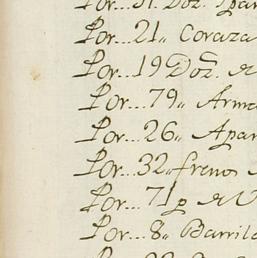 Por...31. Doz.
Por...21,, Coraza
Por...19 Doz. de
Por...79,, Arma
Por...26,, Apar
Por...32,, frenos
Por...71 p de V
Por...8,, Barril
Por